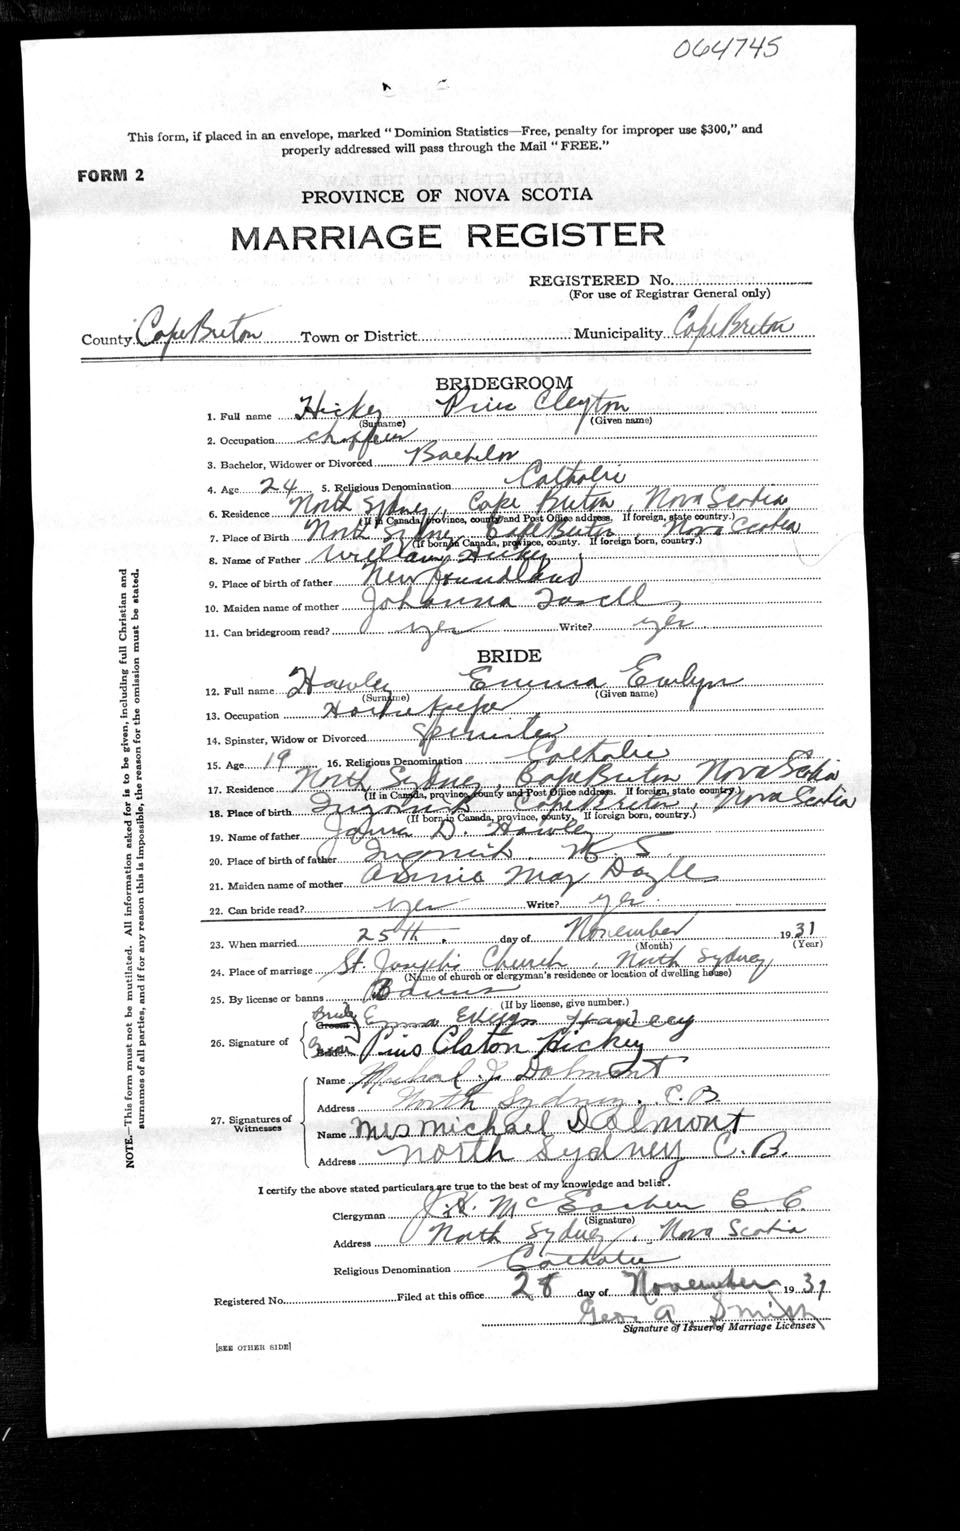 064745
This form, if placed in an envelope, marked "Dominion Statistics—Free, penalty for improper use $300," and
properly addressed will pass through the Mail "FREE."
FORM 2
PROVINCE OF NOVA SCOTIA
MARRIAGE REGISTER
REGISTERED No.
(For use of Registrar General only)
County Cape Breton Town or District Municipality Cape Breton
BRIDEGROOM
1. Full name Hickey Pius Clayton
(Surname) (Given name)
2. Occupation
3. Bachelor, Widower or Divorced Bachelor
4. Age 24 5. Religious Denomination Catholic
6. Residence North Sydney, Cape Breton, Nova Scotia
(If in Canada, province, county and Post Office address. If foreign, state country.)
7. Place of Birth North Sydney Cape Breton, Nova Scotia
(If born in Canada, province, county. If foreign born, country.)
8. Name of Father William Hickey
9. Place of birth of father Newfoundland
10. Maiden name of mother Johanna
11. Can bridegroom read? yes Write? yes
BRIDE
12. Full name Hawley Emma Evelyn
(Surname) (Given name)
13. Occupation Housekeeper
14. Spinster, Widow or Divorced Spinster
15. Age 19 16. Religious Denomination Catholic
17. Residence North Sydney, Cape Breton Nova Scotia
(If in Canada, province, county and Post Office address. If foreign, state country.)
18. Place of birth Ingonish Cape Breton, Nova Scotia
(If born in Canada, province, county. If foreign born, country.)
19. Name of father D. Hawley
20. Place of birth of father Ingonish, N S
21. Maiden name of mother Annie May Doyle
22. Can bride read? yes Write? yes.
23. When married 25th day of November 1931
(Month) (Year)
24. Place of marriage St Joseph's Church, North Sydney
(Name of church or clergyman's residence or location of dwelling house)
25. By license or banns Banns
(If by license, give number.)
26. Signature of Bride Groom Emma Evelyn Hawley
Groom Bride Pius Claton Hickey
27. Signatures of Witnesses
Name Michael J. Dalmont
Address North Sydney. C.B.
Name Mrs Michael Dalmont
Address North Sydney C.B.
I certify the above stated particulars are true to the best of my knowledge and belief.
Clergyman J. H. McEachen C. C.
(Signature)
Address North Sydney, Nova Scotia
Religious Denomination Catholic
Registered No. Filed at this office 28 day of November 1931
Geo. A Smith
Signature of Issuer of Marriage Licenses
[SEE OTHER SIDE]
NOTE.—This form must not be mutilated. All information asked for is to be given, including full Christian and
surnames of all parties, and if for any reason this is impossible, the reason for the omission must be stated.